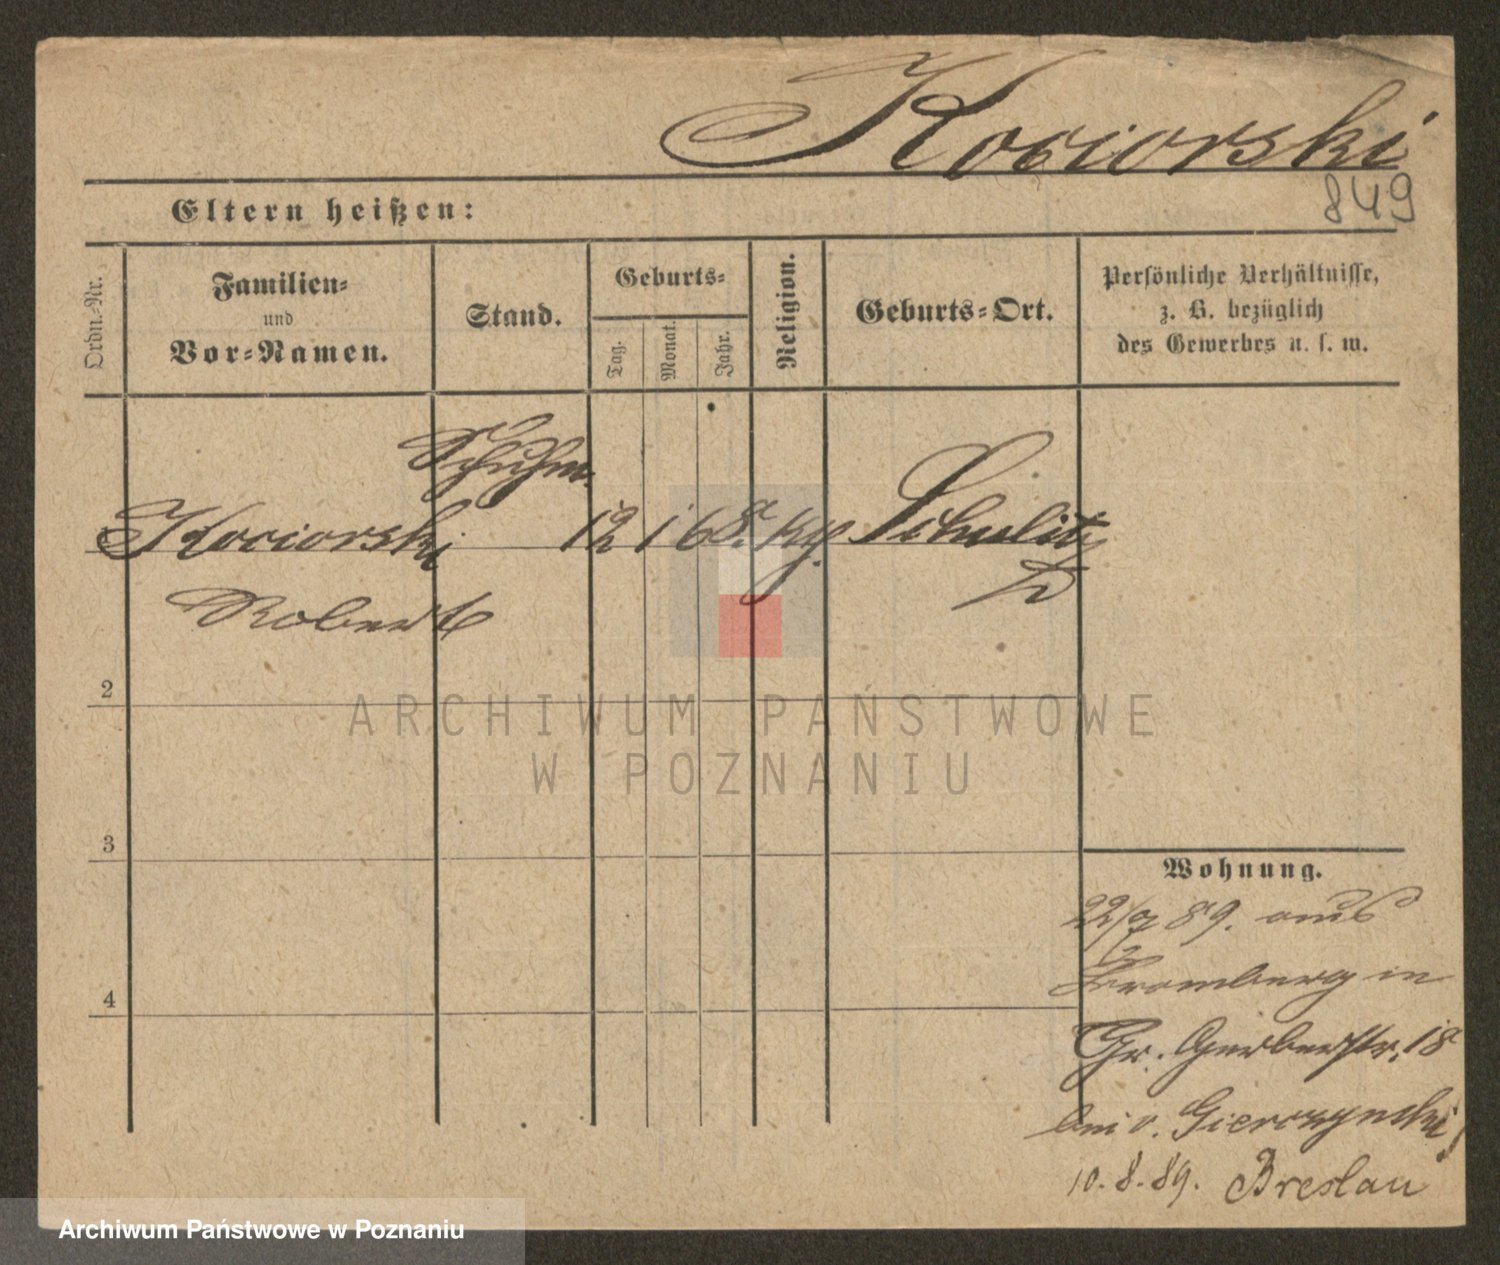 Kociorski
849
Eltern heißen:
Ordn.-Nr.
Familien-
und
Vor-Namen.
Stand.
Geburts-
Tag.
Monat.
Jahr.
Religion.
Geburts-Ort.
Persönliche Verhältnisse,
z. B. bezüglich
des Gewerbes u. s. w.
Schuhm.
Kociorski 12 1 68. Schulitz
Robert
2
3
4
Wohnung.
22/7 89. aus
Bromberg in
Gr. Gerberstr. 18
bei v. Gierczynski
10.8.89. Breslau
ARCHIWUM PAŃSTWOWE
W POZNANIU
Archiwum Państwowe w Poznaniu